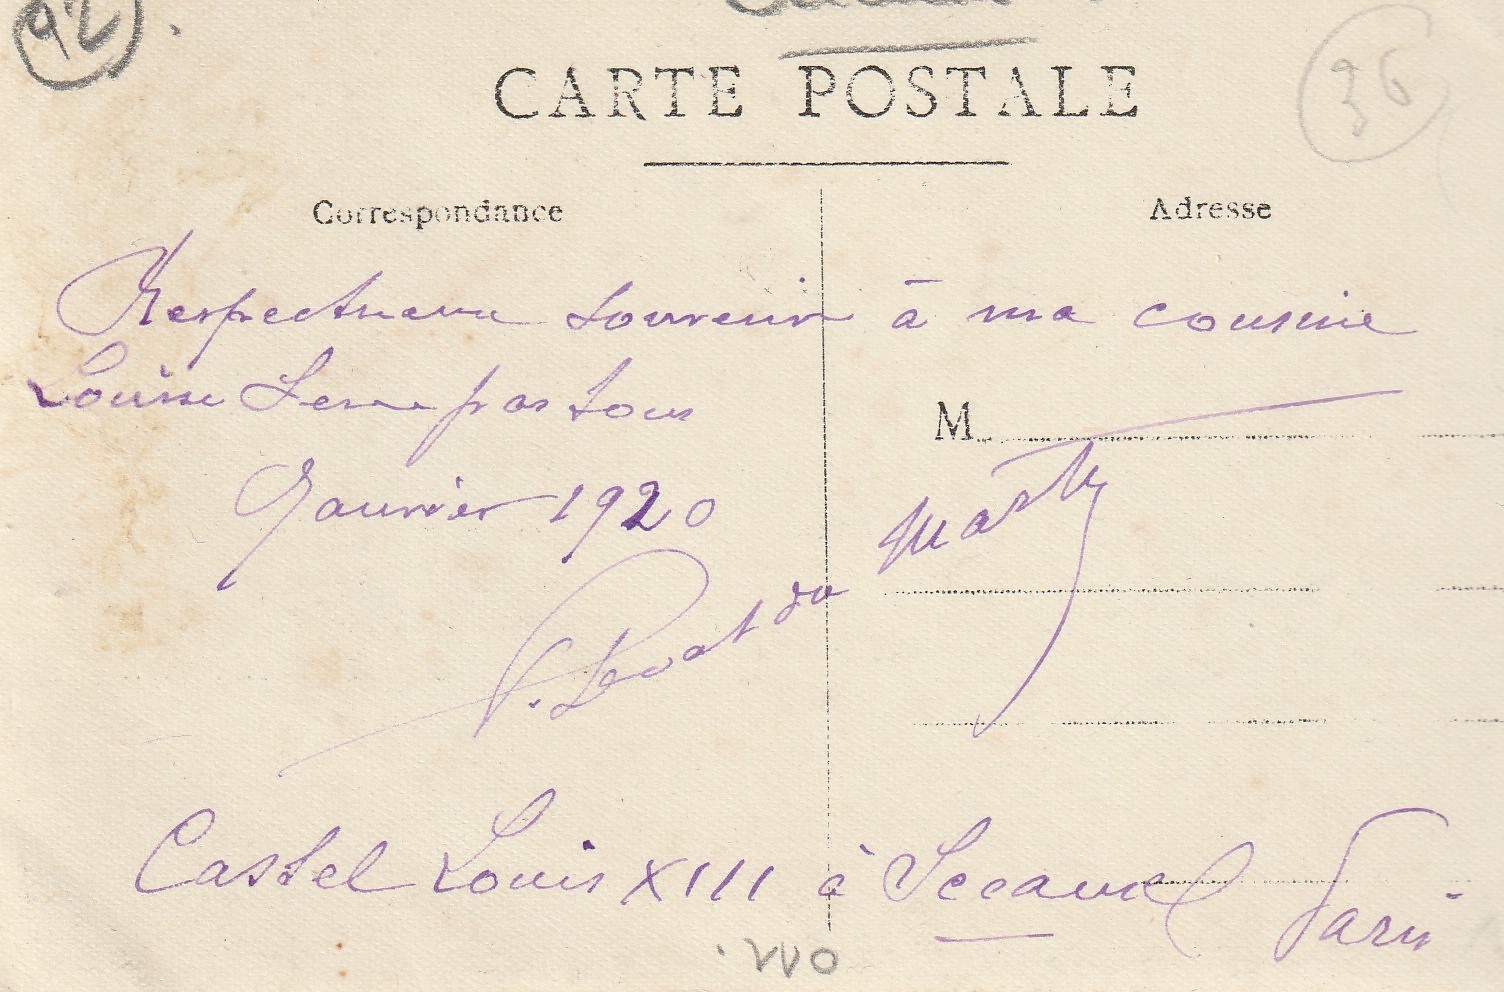 92
CARTE POSTALE
36
Correspondance
Adresse
Respectueux souvenir à ma cousine
Louise
M
Janvier 1920
du Marty
Castel Louis XIII à Sceaux Paris